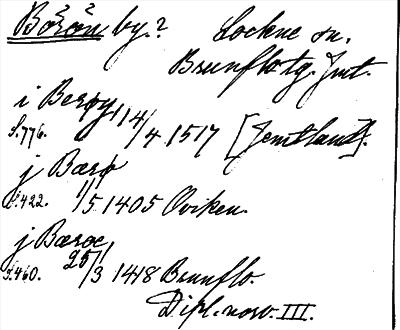 Börön by.? Lockne sn.
Brunflo tg. Jmt.
i Berøy 14/4 1517 [Jemtland].
S. 776.
j Bærø
S. 422. 1/5 1405 Oviken.
j Bæroe,
S. 460. 25/3 1418 Brunflo.
Dipl. norv. III.